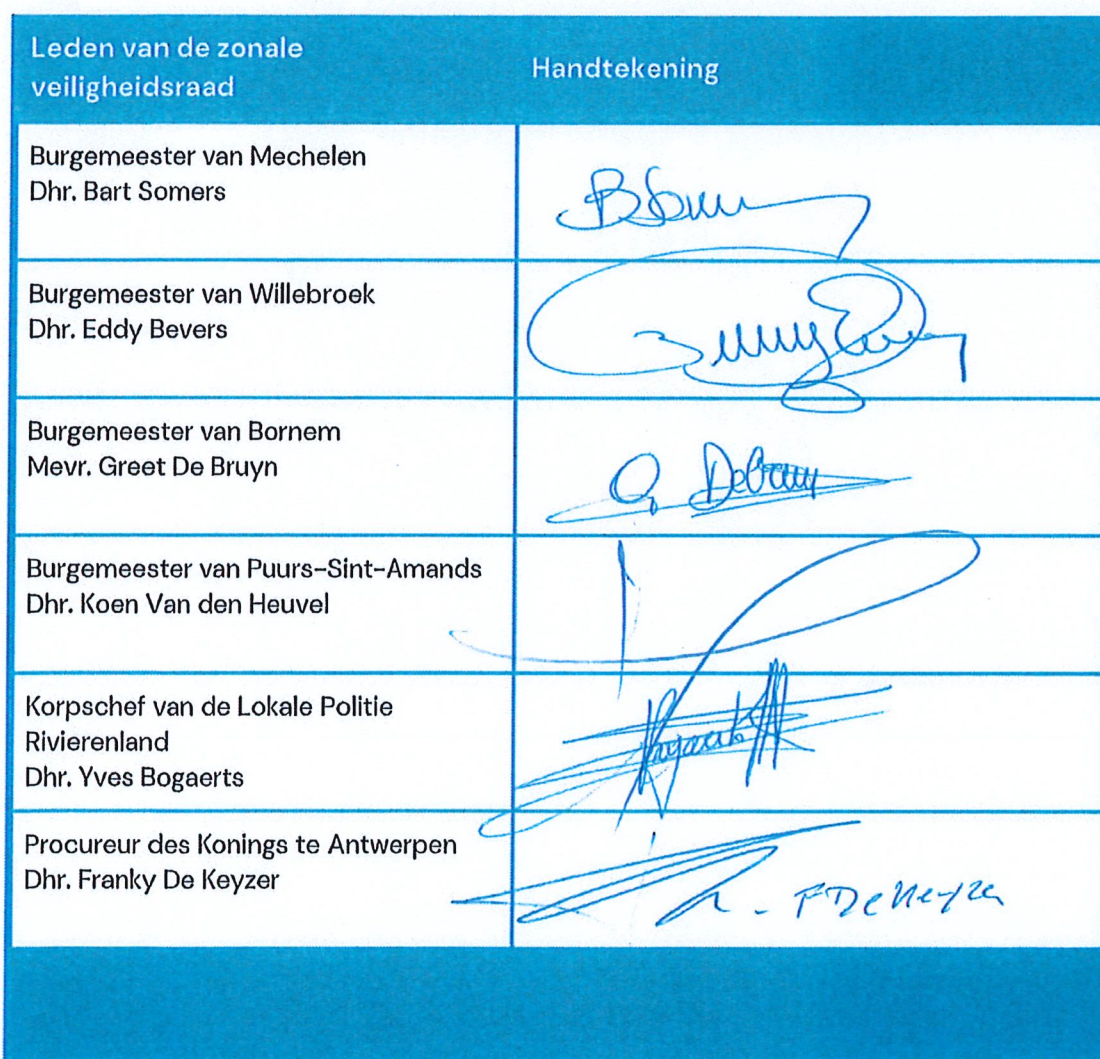 Leden van de zonale
veiligheidsraad
Handtekening
Burgemeester van Mechelen
Dhr. Bart Somers
Burgemeester van Willebroek
Dhr. Eddy Bevers
Burgemeester van Bornem
Mevr. Greet De Bruyn
Burgemeester van Puurs-Sint-Amands
Dhr. Koen Van den Heuvel
Korpschef van de Lokale Politie
Rivierenland
Dhr. Yves Bogaerts
Procureur des Konings te Antwerpen
Dhr. Franky De Keyzer
F De Keyzer